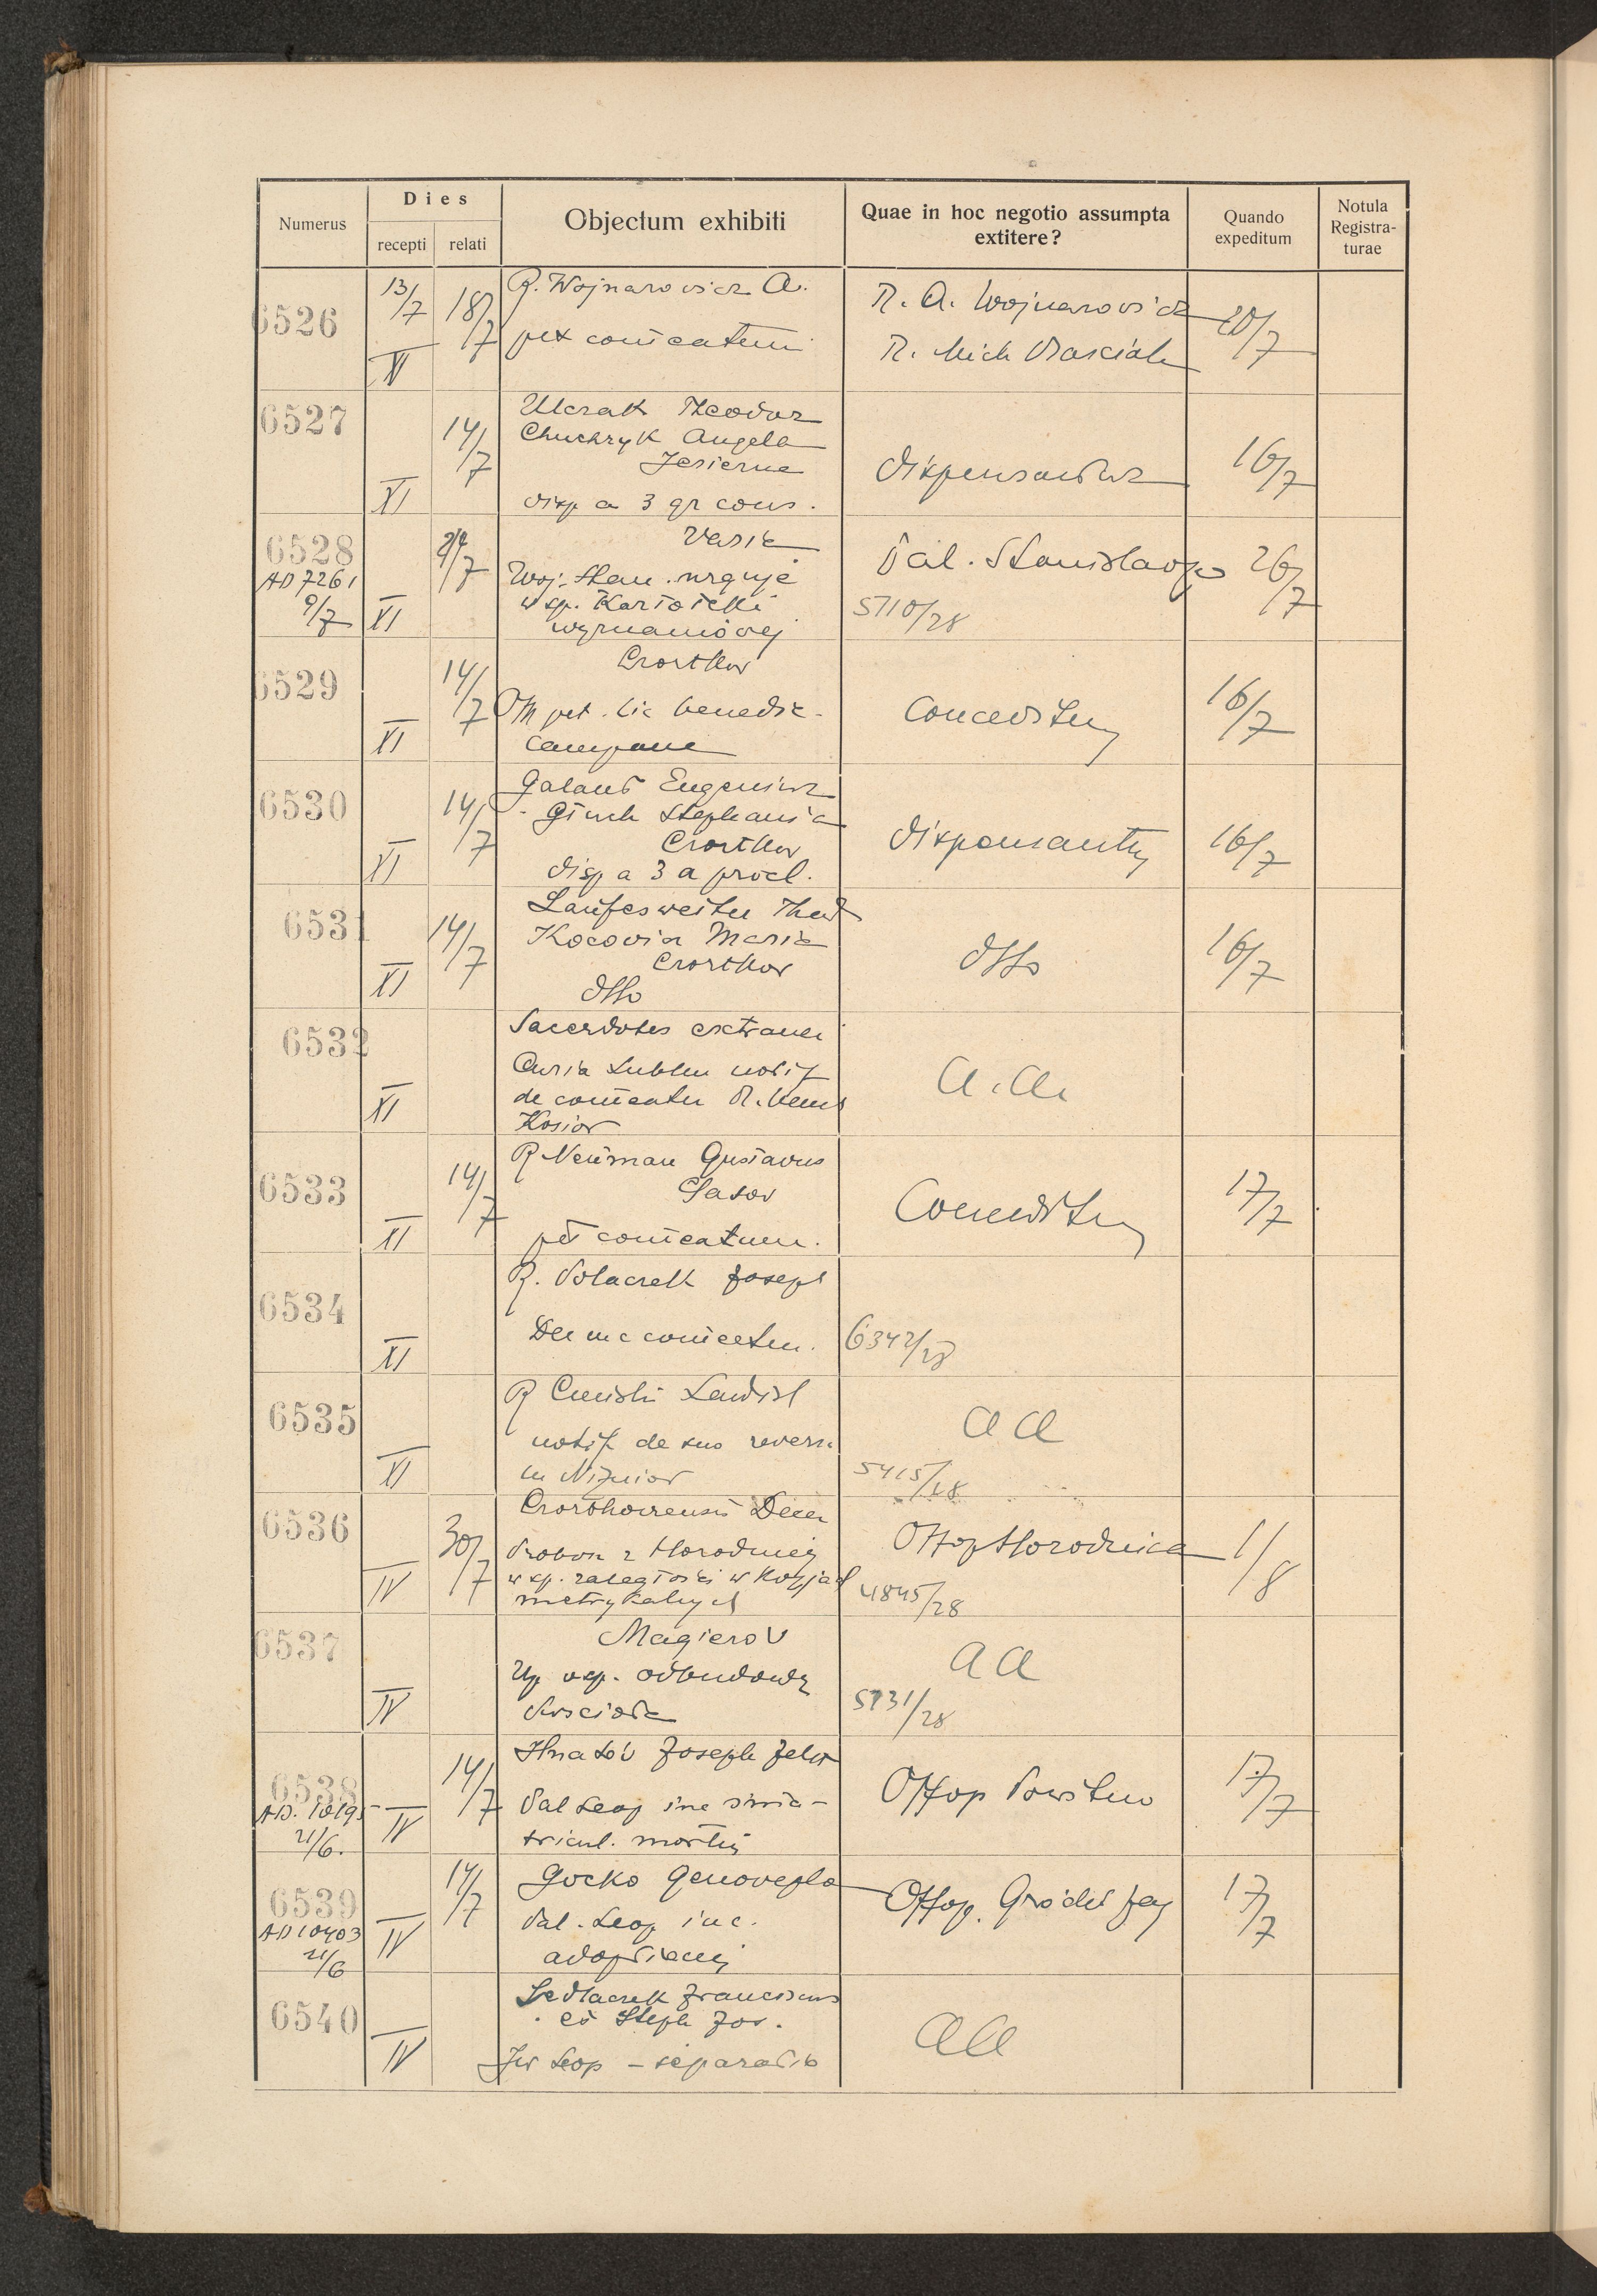 Numerus
Dies
recepti
relati
Objectum exhibiti
Quae in hoc negotio assumpta
extitere?
Quando
expeditum
Notula
Registra-
turae
6526
13/7
XI
18/7
R. Wojnarovicz A.
pet comeatum
R. A. Wojnarovicz
R. Mich
20/7
6527
XI
14/7
Theodor
Chuchryk Angela
Jesierna
disp a 3 gr cons.
Dispensantur
16/7
6528
AD 7261
9/7
XI
24/7
Varia
Woj. Stan. urguje
w sp. Kartoteki
wyznaniowej
Pal. Stanislavov
5710/28
26/7
6529
XI
14/7
Czortkow
OM pet. lic benedic.
campane
Conceditur
16/7
6530
XI
14/7
Galant Eugeniusz
Stephania
Czortkow
disp a 3 a procl.
Dispensantur
16/7
6531
XI
14/7
Maria
Czortkow
dtto
dtto
16/7
6532
XI
Sacerdotes extranei
Curia Lublin notif
de comeatu R.
Kosior
a. a.
6533
XI
14/7
R Neuman Gustavus
Sasov
pet comeatum.
Conceditur
17/7
6534
XI
R. Polaczek Joseph
comeatu.
6342/28
6535
XI
R
notif de suo reversu
in Nizniow
a a
5415/28
6536
IV
30/7
Czortkoviensis Decan
Probosz z Horodnicy
w sp. zaległości w kopjach
metrykalnych
Off op Horodnica
4845/28
1/8
6537
IV
Magierov
Up wsp. odbudowy
Kościoła
a a
5731/28
6538
AD. 10195
21/6.
IV
14/7
Hnatów Joseph Felix
Pal Leop
tricul. mortis
Off op
17/7
6539
AD 10403
21/6
IV
14/7
Gocko Genovepha
Pal. Leop inc.
Off op. Gródek Jag
17/7
6540
IV
Sedlaczek Franciscus
et Steph
Leop - separatio
aa